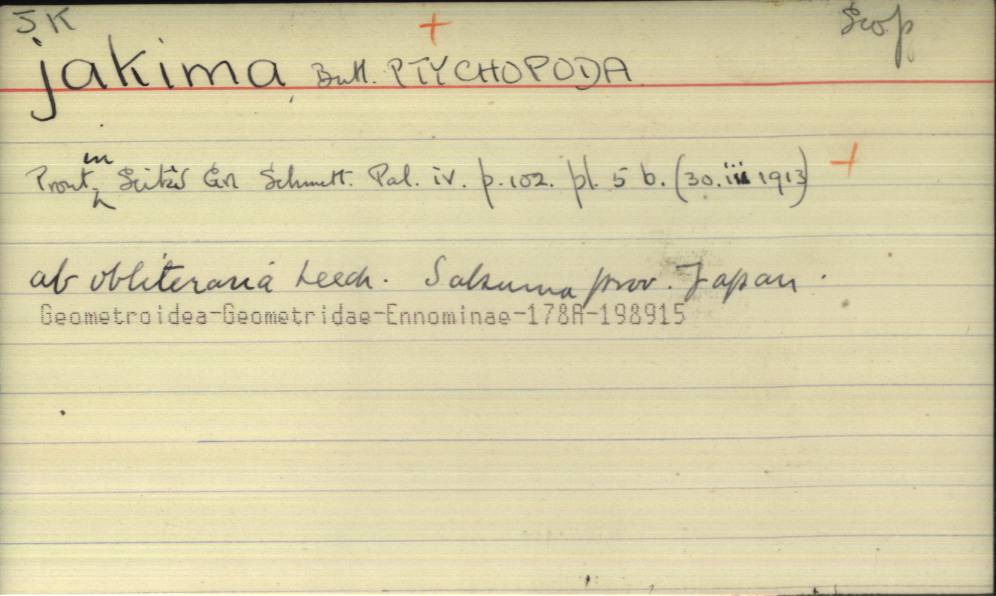 JK + Scop
jakima, Butt. PTYCHOPODA
Prout, in Seitz's Gr. Schmett. Pal. iv. p. 102. pl. 5 b. (30.iii 1913) +
ab obliteraria Leech. Satsuma prov. Japan.
Geometroidea-Geometridae-Ennominae-178A-198915